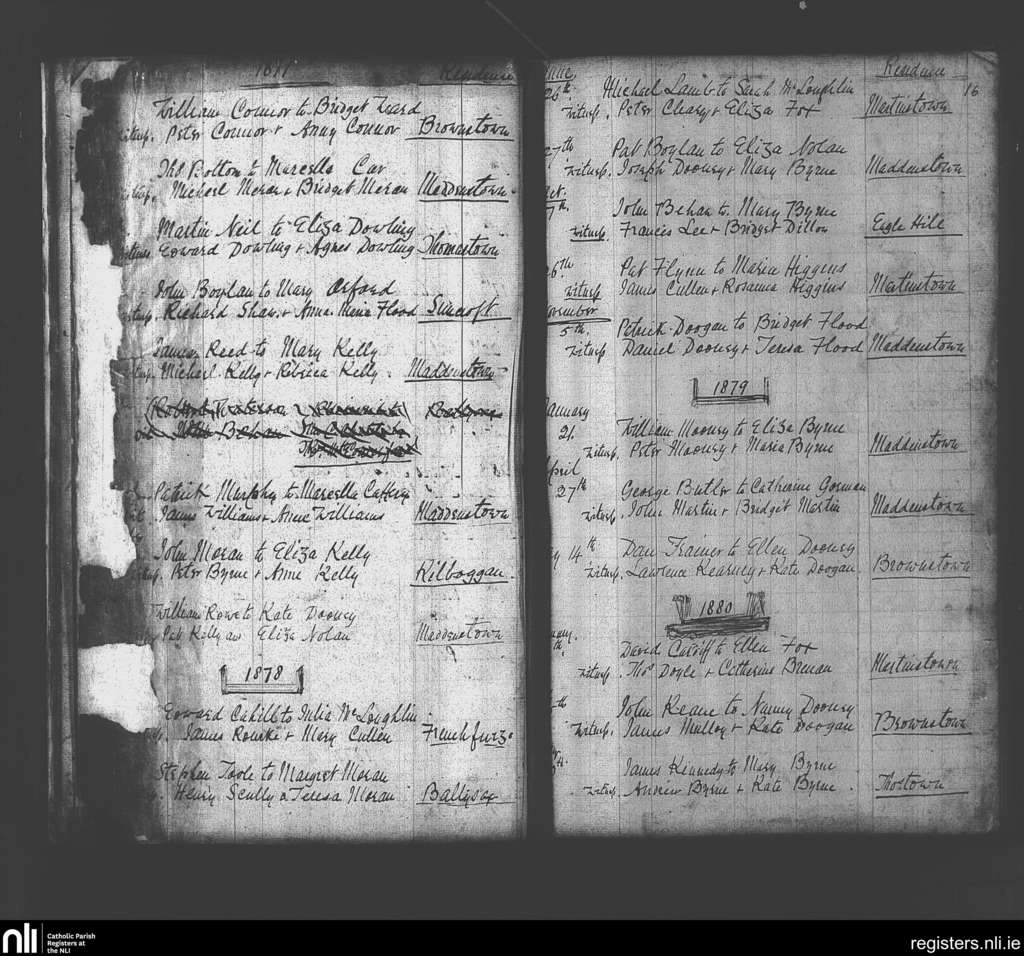 1877 Residence
William Connor to Bridget
Peter Connor + Anny Connor Brownstown
Thos Bolton to Marcella
Michael Moran + Bridget Moran Maddenstown
Martin Neil to Eliza Dowling
Edward Dowling + Agnes Dowling Thomastown
John Boylan to Mary Oxford
Richard Shaw + Anna Maria Flood Suncroft
James Reed to Mary Kelly
Michael Kelly + Rebecca Kelly Maddenstown
Patrick Murphy to Marcella Caffery
James Williams + Anne Williams Maddenstown
John Moran to Eliza Kelly
Peter Byrne + Anne Kelly Kilboggan
William Rowe to Kate Dooney
Pat Kelly an Eliza Nolan Maddenstown
1878
Edward Cahill to Julia McLoughlin
James Rourke + Mary Cullen Frenchfurze
Stephen Toole to Margret Moran
Henry Scully & Teresa Moran Ballysax
Residence
26th Michael Lamb to Sarah McLoughlin 16
witnesp. Peter Cleary + Eliza Fox Martinstown
27th Pat Boylan to Eliza Nolan
witnesp. Joseph Dooney + Mary Byrne Maddenstown
7th John Behan to Mary Byrne
witnesp. Francis Lee + Bridget Dillon Eagle Hill
6th Pat Flynn to Maria Higgens
witnesp James Cullen + Rosanna Higgens Martinstown
November
5th. Patrick Doogan to Bridget Flood
witnesp Daniel Dooney + Teresa Flood Maddenstown
1879
January
21. William Mooney to Eliza Byrne
witnesp. Peter Mooney + Maria Byrne Maddenstown
April
27th George Butler to Catherine Gorman
witnesp. John Martin + Bridget Martin Maddenstown
14th Dan Trainer to Ellen Dooney
witnesp. Lawrence Kearney + Kate Doogan Brownstown
1880
David Cardiff to Ellen Fox
witnesp. Thos Doyle + Catherine Brenan Martinstown
John Keane to Nanny Dooney
witnesp. James Mulloy + Kate Doogan Brownstown
James Kennedy to Mary Byrne
witnesp. Andrew Byrne + Kate Byrne.
nli Catholic Parish
Registers at
the NLI
registers.nli.ie